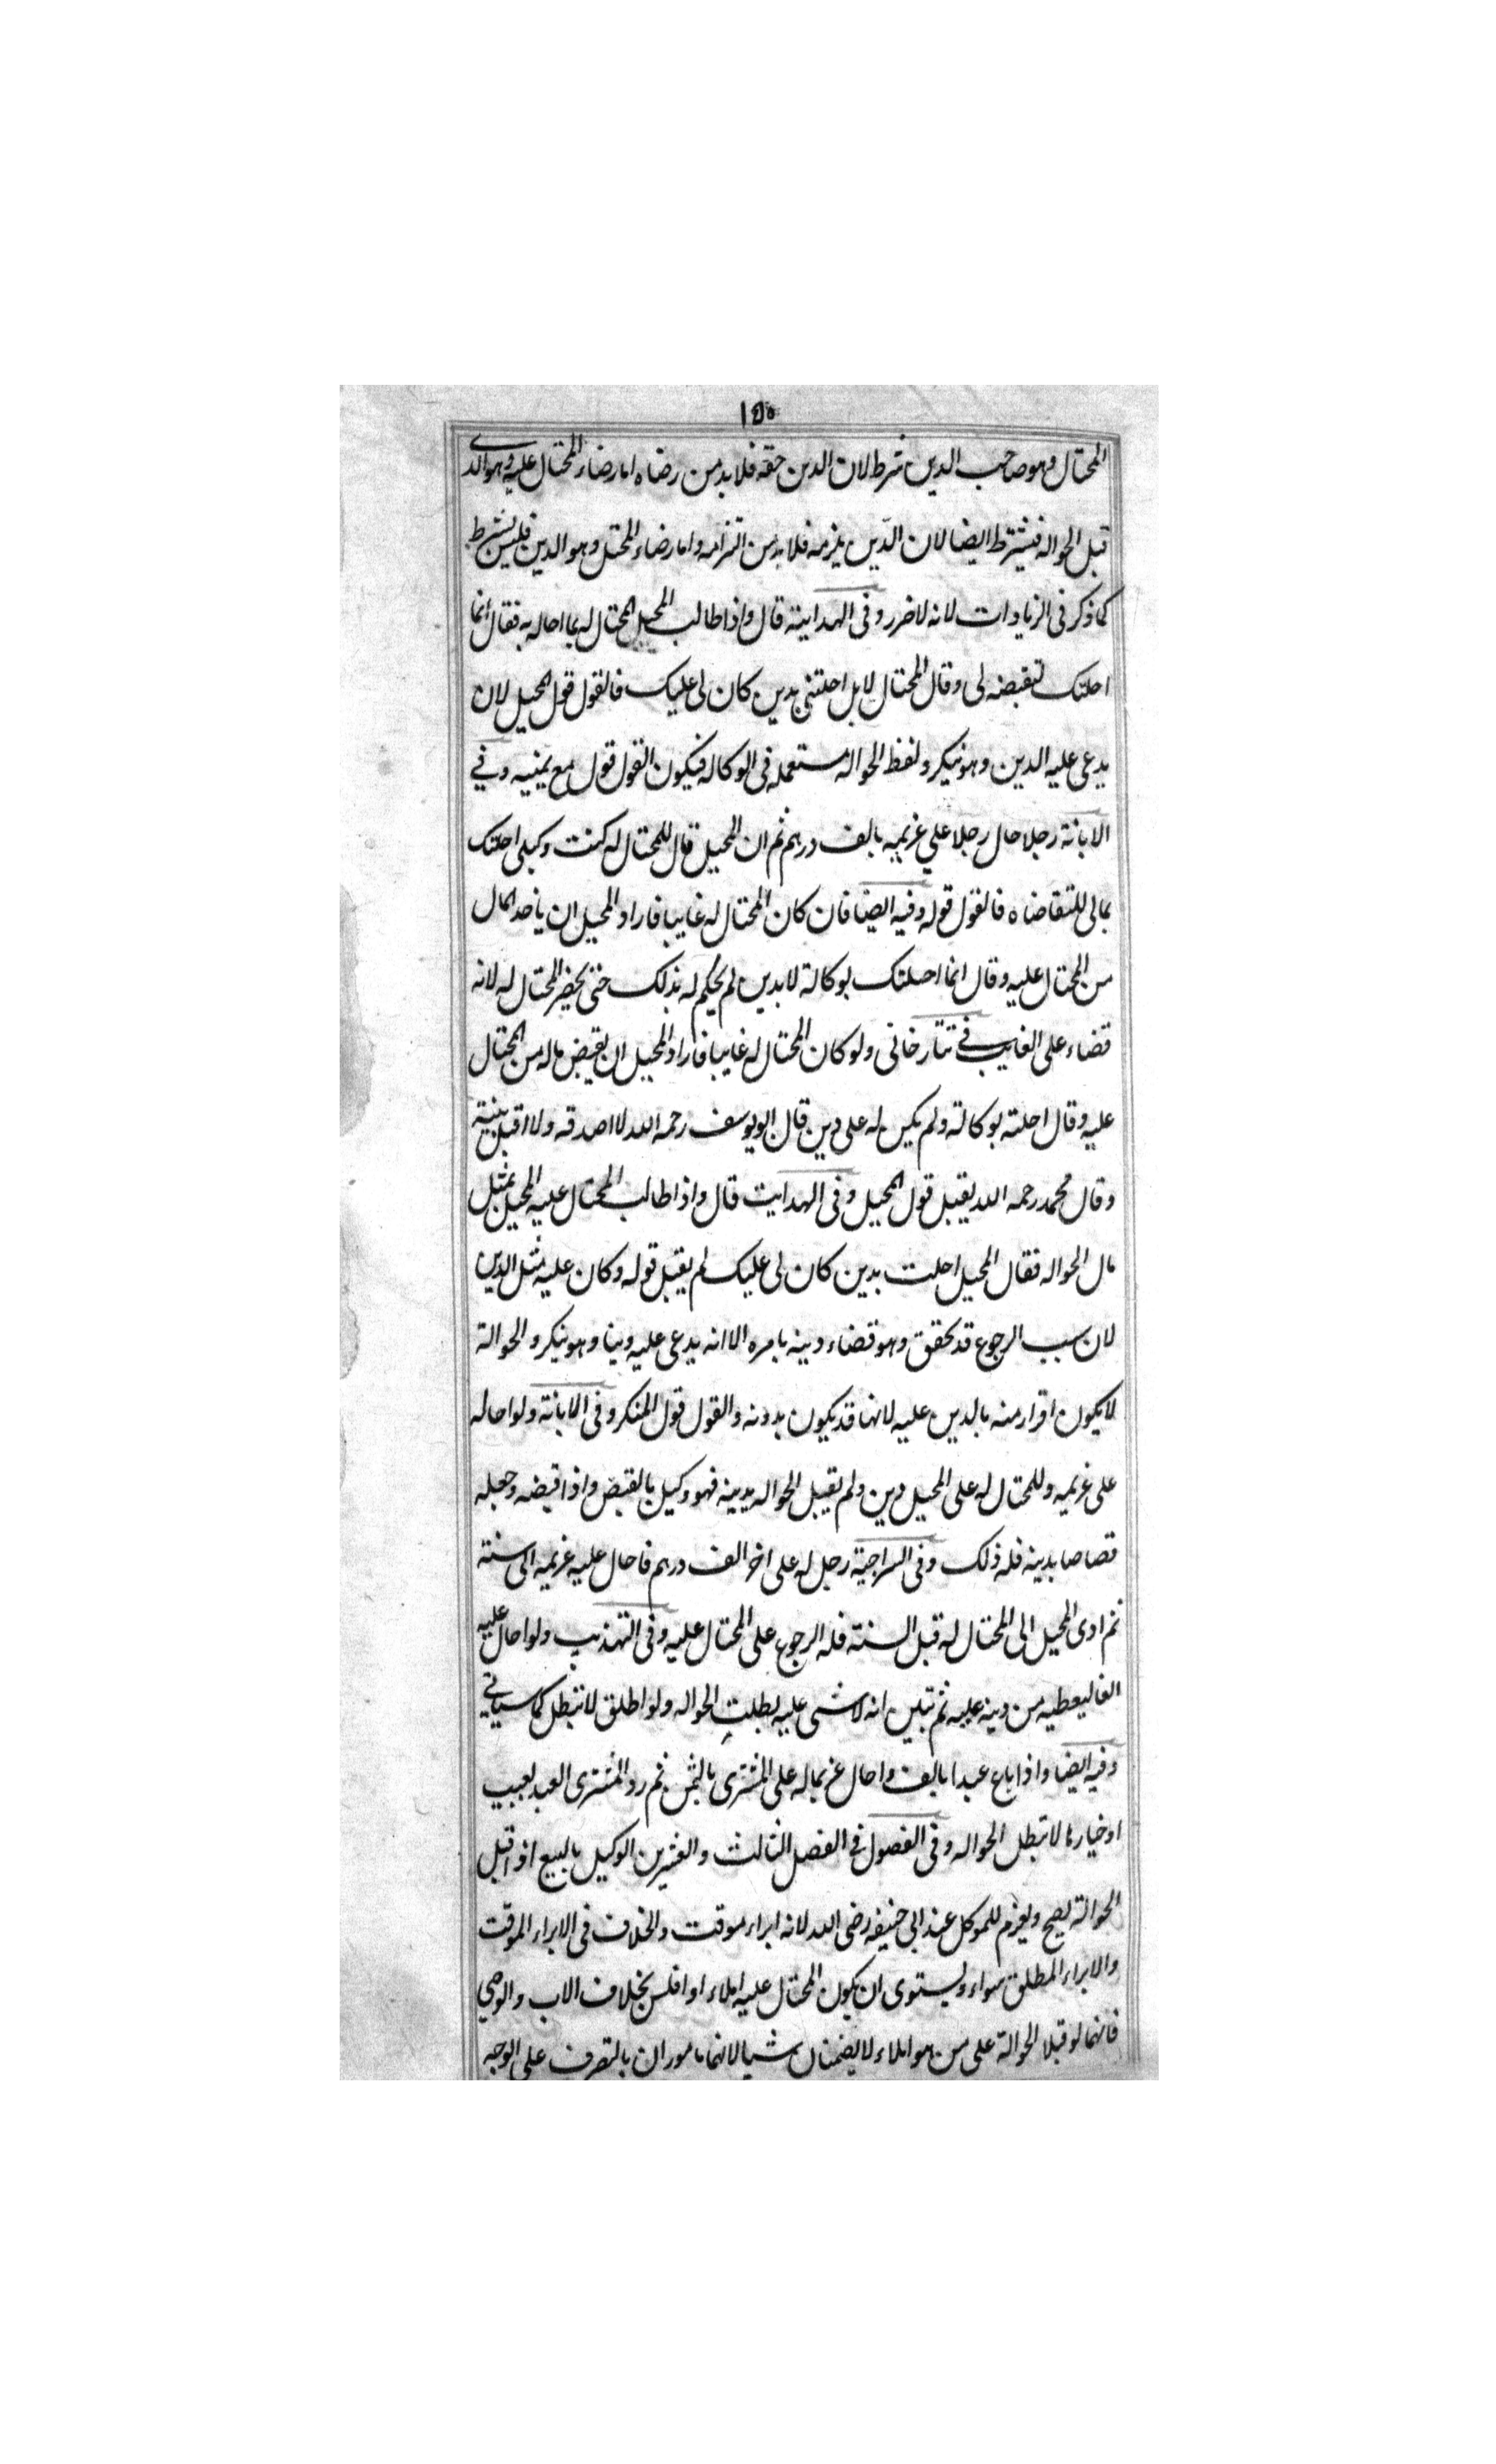 ١٥٥
المحتال وهو صاحب الدين شرط لان الدين حقه فلا بد من رضاه اما رضاء المحتال عليه وهو الذى
قبل الحواله فيشترط ايضا لان الدّين يلزمه فلا بد من التزامه واما رضاء المحتل وهو الدين فليس بشرط
كما ذكر فى الزيادات لانه لا ضرر وفى الهداينة قال واذا طالب المحيل المحتال له بما احاله به فقال انما
احلتك لتقبضه لى وقال المحتال لا بل احلتنى بدين كان لى عليك فالقول قول المحيل لان
يدعى عليه الدين وهو ينكر ولفظ الحواله مستعمله فى الوكاله فيكون القول قول مع يمينه وفي
الابانة رجلا حال رجلا علي غريمه بالف درهم ثم ان المحيل قال للمحتال له كنت وكيلى احلتك
بمالى للتقاضاه فالقول قوله وفيه ايضا فان كان المحتال له غايبا فاراد المحيل ان ياخد المال
من المحتال عليه وقال انما احلتك بوكالة لا بدين لم يحكم له بذلك حتى يحضر المحتال له لانه
قضاء على الغايب في تتار خانى ولو كان المحتال له غايبا فاراد المحيل ان يقبض ماله من المحتال
عليه وقال احلته بوكالته ولم يكن له على دين قال ابو يوسف رحمه الله لا اصدقه ولا اقبل بينته
وقال محمد رحمه الله يقبل قول المحيل وفى الهدايت قال واذا طالب المحتال عليه المحيل بمثل
مال الحواله فقال المحيل احلت بدين كان لى عليك لم يقبل قوله وكان عليه مثل الدين
لان سبب الرجوع قد تحقق وهو قضاء دينه بامره الا انه يدعى عليه دينا وهو ينكر والحوالة
لا يكون اقرار منه بالدين عليه لانها قد يكون بدونه والقول قول المنكر وفى الابانة ولو احاله
على غريمه وللمحتال له على المحيل دين ولم يقبل الحواله بدينه فهو وكيل بالقبض واذا قبضه وجعله
قصاصا بدينه فله ذلك وفى السراجية رجل له على اخر الف درهم فاحال عليه غريمه الى سنة
ثم ادى المحيل الى المحتال له قبل السنة فله الرجوع على المحتال عليه وفى التهذيب ولو احال عليه
الفا ليعطيه من دينه عليه ثم تبين انه لا شى عليه بطلت الحواله ولو اطلق لا تبطل كما سياتي
وفيه ايضا واذا باع عبدا بالف واحال غريما له على المشترى بالثمن ثم رد المشترى العبد بعيب
او خيار ما لا تبطل الحواله وفى الفصول فى الفصل الثالث والعشرين الوكيل بالبيع اذا قبل
الحوالة يصح ويغرم للموكل عند ابى حنيفه رضى الله لانه ابراء موقت والخلاف فى الابراء الموقت
والابراء المطلق سواء ويستوى ان يكون المحتال عليه املاء او افلس بخلاف الاب والوصي
فانهما لو قبلا الحوالة على من هو املاء لا يضمنان شيا لانهما ماموران بالتصرف على الوجه